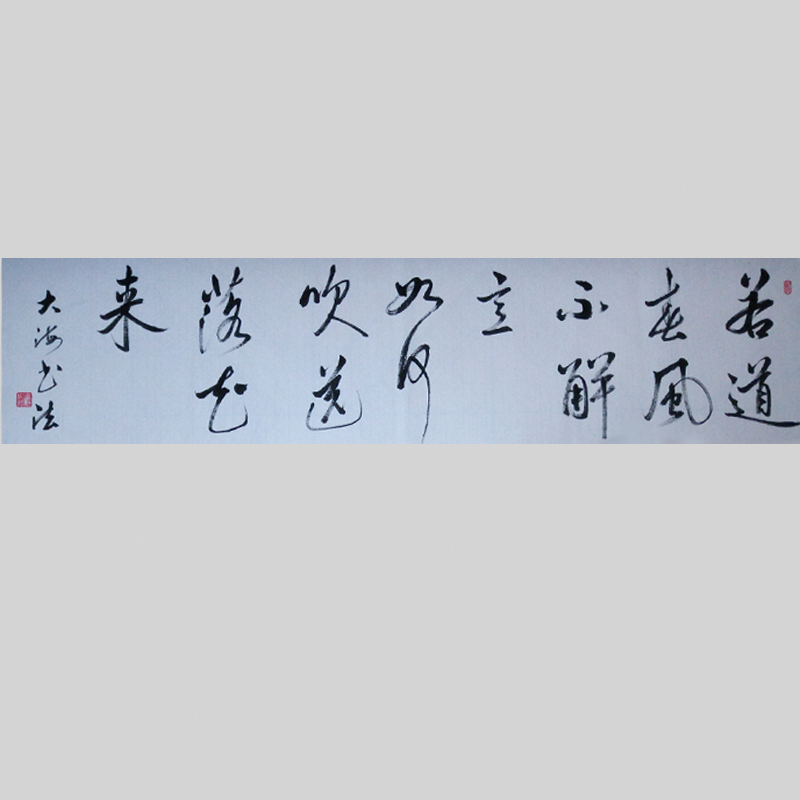 若道
春風
不解
意
如何
吹送
落花
来
大海书法